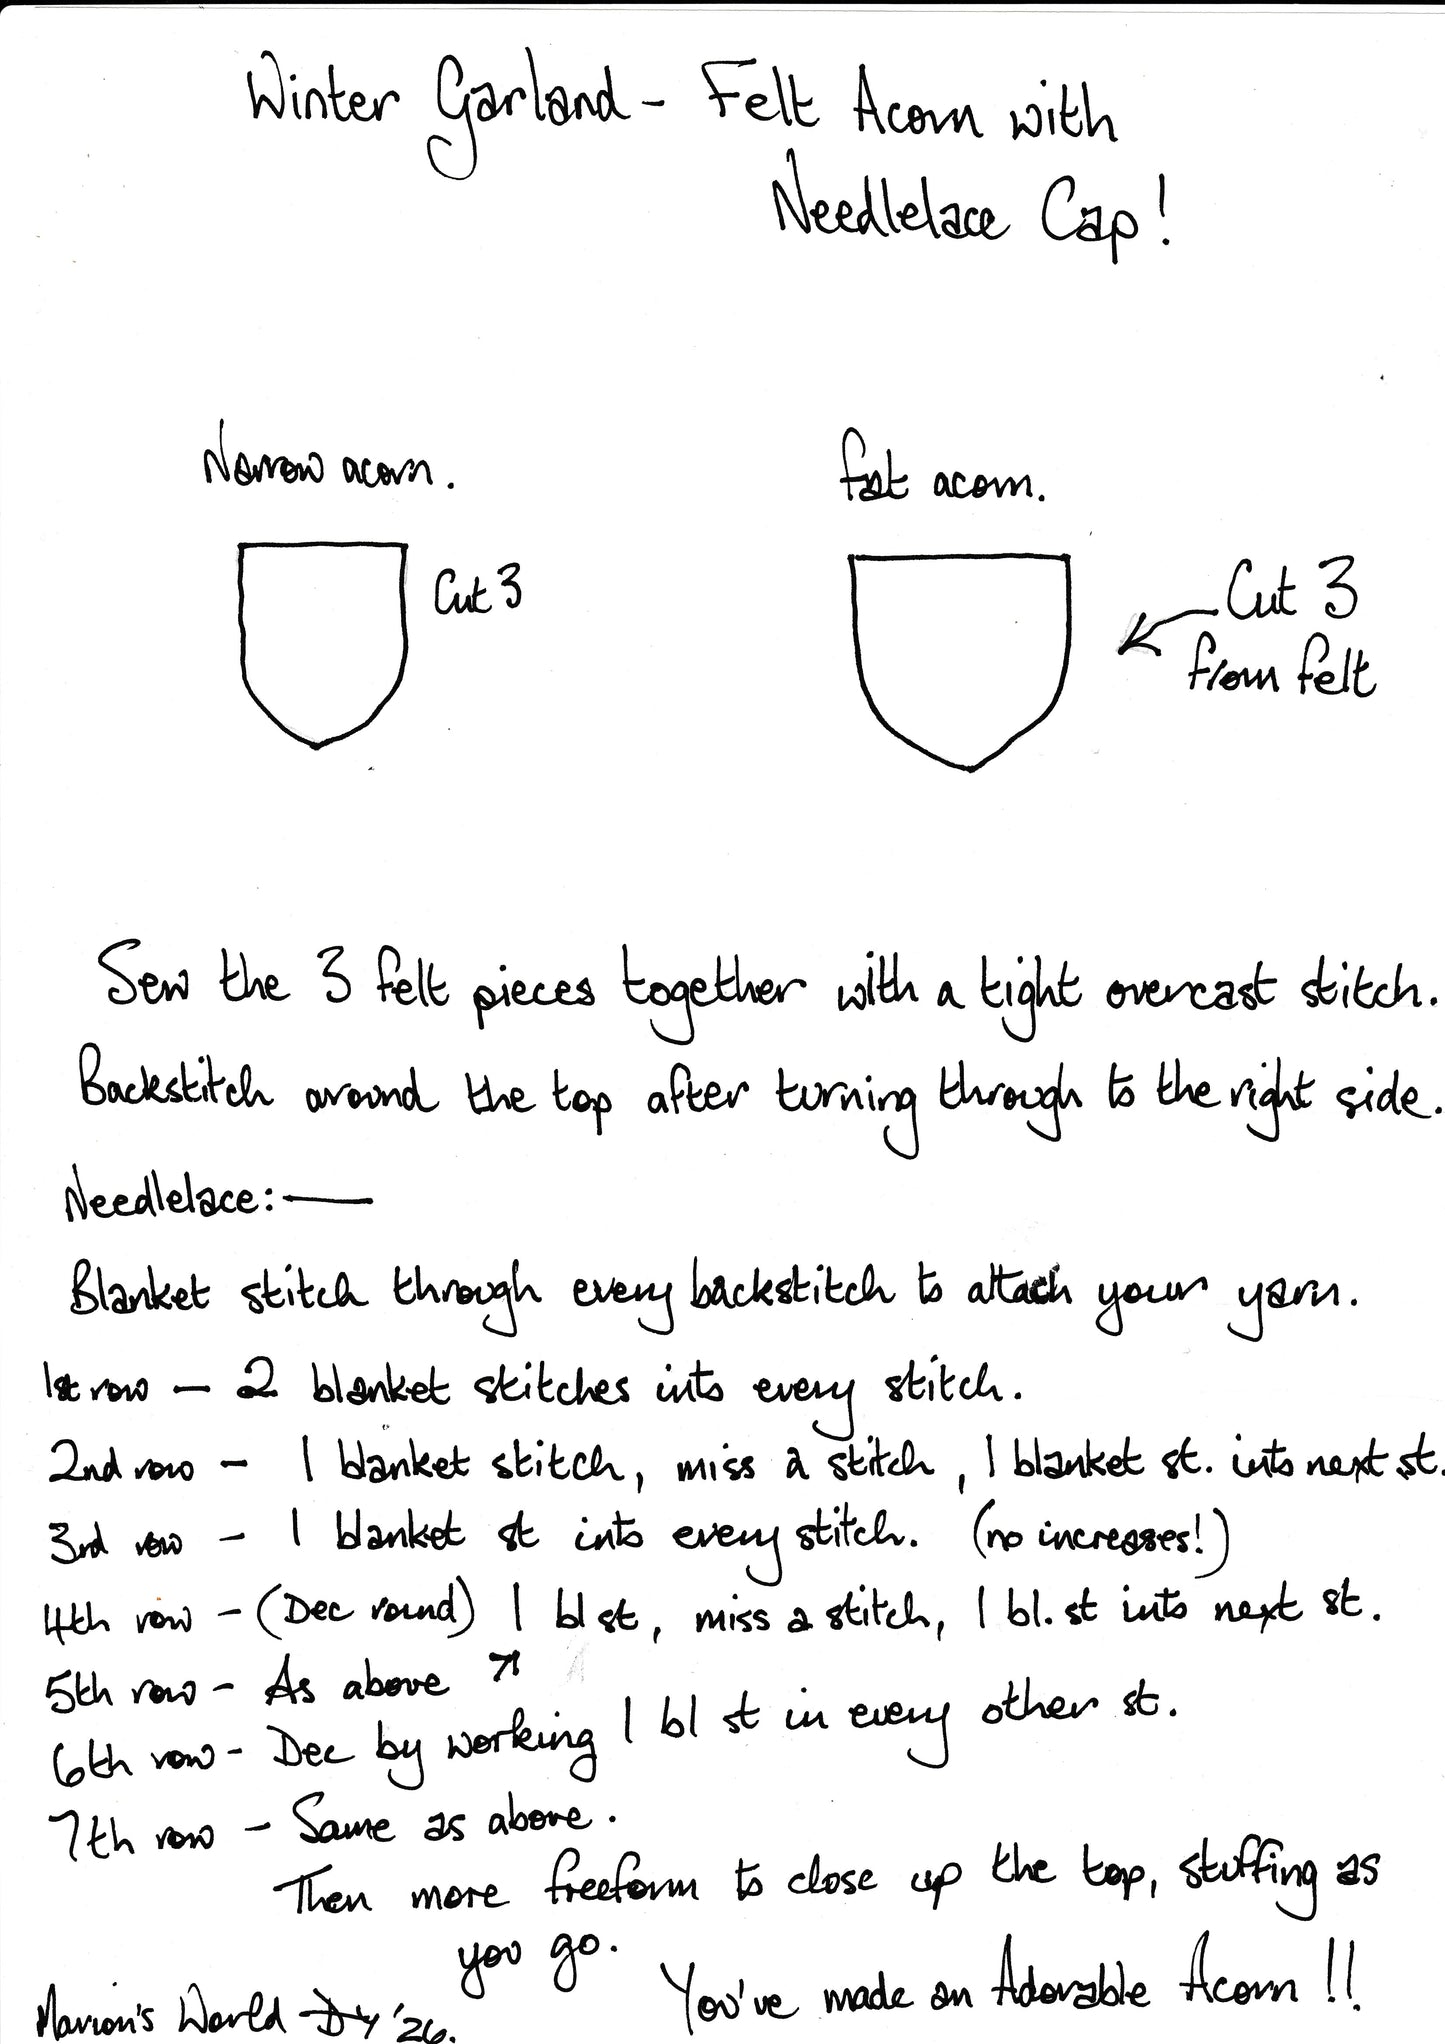 Winter Garland - Felt Acorn with
Needlelace Cap!
Narrow acorn.
fat acorn.
Cut 3
Cut 3
from felt
Sew the 3 felt pieces together with a tight overcast stitch.
Backstitch around the top after turning through to the right side.
Needlelace:—
Blanket stitch through every backstitch to attach your yarn.
1st row — 2 blanket stitches into every stitch.
2nd row - 1 blanket stitch, miss a stitch, 1 blanket st. into next st.
3rd row - 1 blanket st into every stitch. (no increases!)
4th row - (Dec round) 1 bl st, miss a stitch, 1 bl. st into next st.
5th row - As above ↗
6th row - Dec by working 1 bl st in every other st.
7th row - Same as above.
Then more freeform to close up the top, stuffing as
you go.
You've made an Adorable Acorn!!
Marion's World '26.